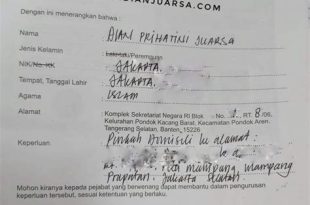 DIANJUARSA.COM
Dengan ini menerangkan bahwa :
Nama : DIAN PRIHATINI JUARSA
Jenis Kelamin : Laki-laki/Perempuan
NIK/No. KK : JAKARTA
Tempat, Tanggal Lahir : JAKARTA.
Agama : ISLAM
Alamat : Komplek Sekretariat Negara RI Blok No. RT. 8/06,
Kelurahan Pondok Kacang Barat, Kecamatan Pondok Aren,
Tangerang Selatan, Banten,15226
Keperluan : Pindah Domisili ke alamat :
Mampang
Prapatan, Jakarta Selatan
Mohon kiranya kepada pejabat yang berwenang dapat membantu dalam pengurusan
keperluan tersebut, sesuai ketentuan yang berlaku.